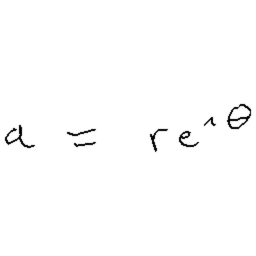 a = re^{iθ}